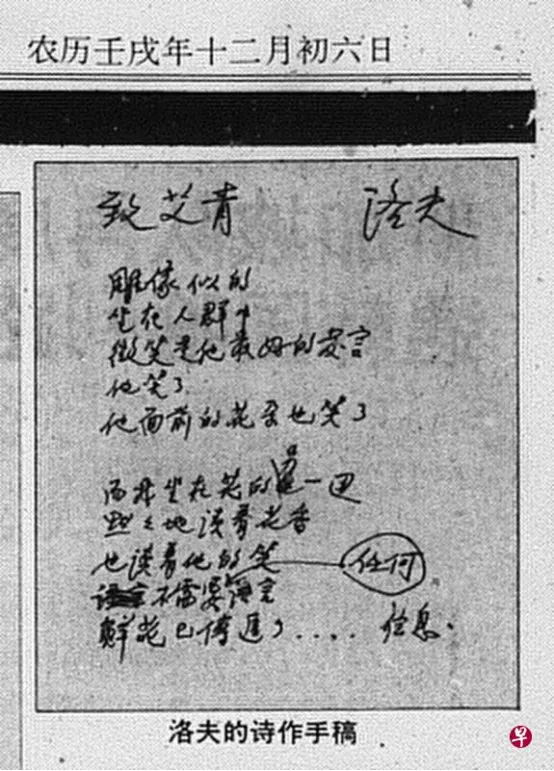 农历壬戌年十二月初六日
致艾青 洛夫
雕像似的
坐在人群中
微笑是他最好的发言
他笑了
他面前的花朵也笑了
而我坐在花的另一边
默々地读着花香
也读着他的笑 任何
不需要语言
鲜花已传递了.... 信息.
洛夫的诗作手稿
早